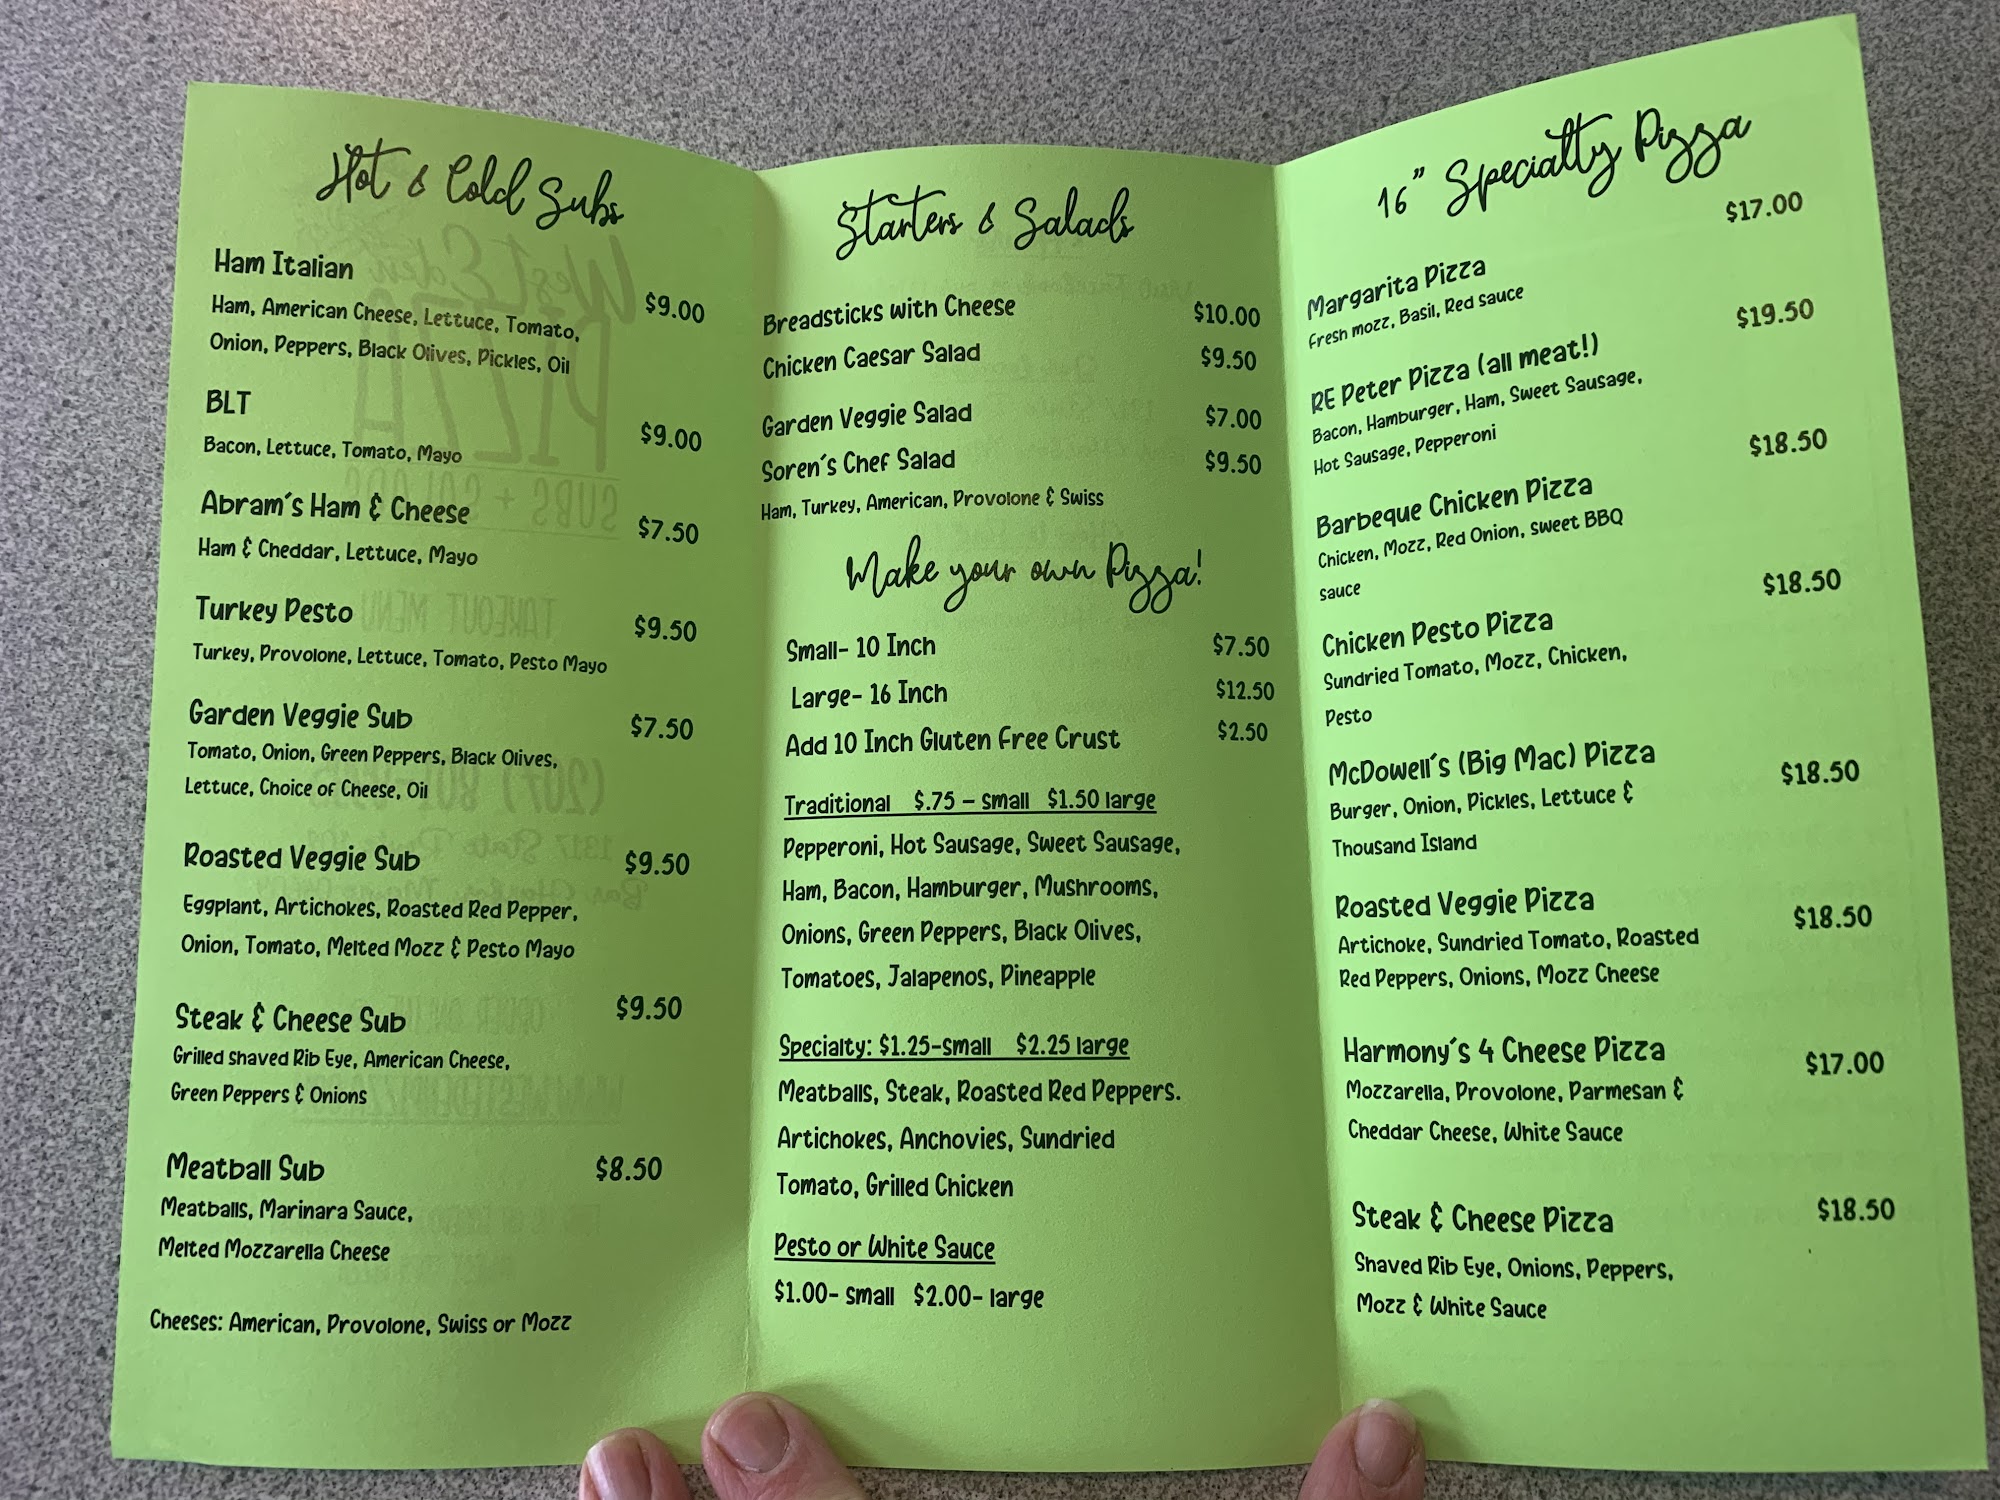 Hot & Cold Subs
Ham Italian
$9.00
Ham, American Cheese, Lettuce, Tomato,
Onion, Peppers, Black Olives, Pickles, Oil
BLT
$9.00
Bacon, Lettuce, Tomato, Mayo
Abram's Ham & Cheese
$7.50
Ham & Cheddar, Lettuce, Mayo
Turkey Pesto
$9.50
Turkey, Provolone, Lettuce, Tomato, Pesto Mayo
Garden Veggie Sub
$7.50
Tomato, Onion, Green Peppers, Black Olives,
Lettuce, Choice of Cheese, Oil
Roasted Veggie Sub
$9.50
Eggplant, Artichokes, Roasted Red Pepper,
Onion, Tomato, Melted Mozz & Pesto Mayo
Steak & Cheese Sub
$9.50
Grilled shaved Rib Eye, American Cheese,
Green Peppers & Onions
Meatball Sub
$8.50
Meatballs, Marinara Sauce,
Melted Mozzarella Cheese
Cheeses: American, Provolone, Swiss or Mozz
Starters & Salads
Breadsticks with Cheese $10.00
Chicken Caesar Salad $9.50
Garden Veggie Salad $7.00
Soren's Chef Salad $9.50
Ham, Turkey, American, Provolone & Swiss
Make your own Pizza!
Small- 10 Inch $7.50
Large- 16 Inch $12.50
Add 10 Inch Gluten Free Crust $2.50
Traditional $.75 - small $1.50 large
Pepperoni, Hot Sausage, Sweet Sausage,
Ham, Bacon, Hamburger, Mushrooms,
Onions, Green Peppers, Black Olives,
Tomatoes, Jalapenos, Pineapple
Specialty: $1.25-small $2.25 large
Meatballs, Steak, Roasted Red Peppers.
Artichokes, Anchovies, Sundried
Tomato, Grilled Chicken
Pesto or White Sauce
$1.00- small $2.00- large
16" Specialty Pizza
$17.00
Margarita Pizza
Fresh mozz, Basil, Red sauce
$19.50
RE Peter Pizza (all meat!)
Bacon, Hamburger, Ham, Sweet Sausage,
Hot Sausage, Pepperoni
$18.50
Barbeque Chicken Pizza
Chicken, Mozz, Red Onion, sweet BBQ
sauce
$18.50
Chicken Pesto Pizza
Sundried Tomato, Mozz, Chicken,
Pesto
McDowell's (Big Mac) Pizza
$18.50
Burger, Onion, Pickles, Lettuce &
Thousand Island
Roasted Veggie Pizza
$18.50
Artichoke, Sundried Tomato, Roasted
Red Peppers, Onions, Mozz Cheese
Harmony's 4 Cheese Pizza
$17.00
Mozzarella, Provolone, Parmesan &
Cheddar Cheese, White Sauce
Steak & Cheese Pizza
$18.50
Shaved Rib Eye, Onions, Peppers,
Mozz & White Sauce